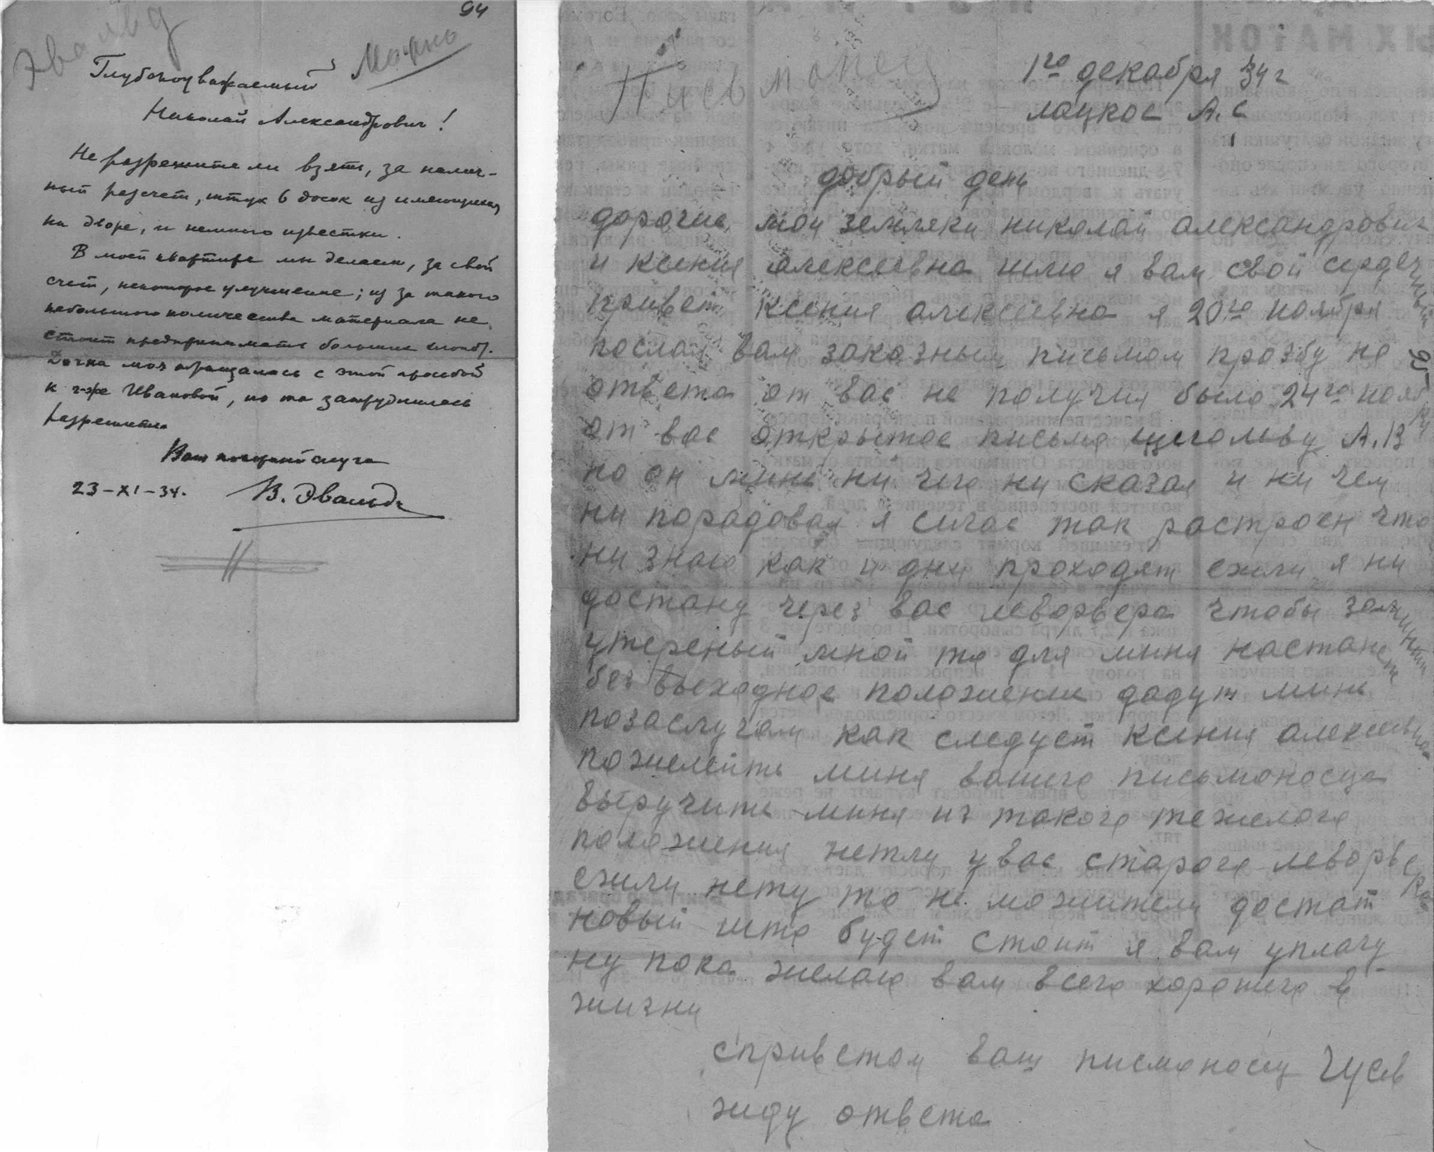 94
Эвальд
Можно
Глубокоуважаемый
Николай Александрович!
Не разрешите ли взять, за налич-
ный расчет, штук 6 досок из имеющихся
на дворе, и немного известки.
В моей квартире мы делаем, за свой
счет, некоторое улучшение; из за такого
небольшого количества материала не
стоит предпринимать большие хлоп.
Дочка моя обращалась с этой просьбой
к г-же Ивановой, но та затруднилась
разрешить.
Ваш покорный слуга
23-XI-34. В. Эвальд
Письмоносец
1го декабря 34 г
лацкое А.С
добрый день
дорогие мои земляки николай александрович
и ксения алексеевна шлю я вам свой сердечный
привет ксения алексеевна я 20го ноября
послал вам заказным письмом прозбу но
ответа от вас не получил было 24го ноября
от вас открытое письмо щеголеву А.В
но он минe ни чего ни сказал и ни чем
ни порадовал я сичас так растроен что
ни знаю как и дни проходят ежили я ни
достану через вас леворвера чтобы заменить
утереный мной то для миня настанет
без выходное положение дадут мине
позаслугам как следует ксения алексеевна
пожелейте миня вашего письмоносца
выручите миня из такого тежелого
положения нетли увас старого леворвера
ежили нету то не можители достат
новый што будет стоит я вам уплачу
ну пока желаю вам всего хорошего в
жизни
сприветом ваш писмоносец Гусев
жду ответа
95